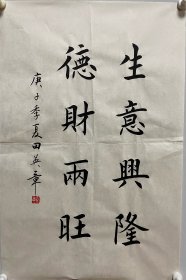 生意興隆
德財兩旺
庚子季夏田英章